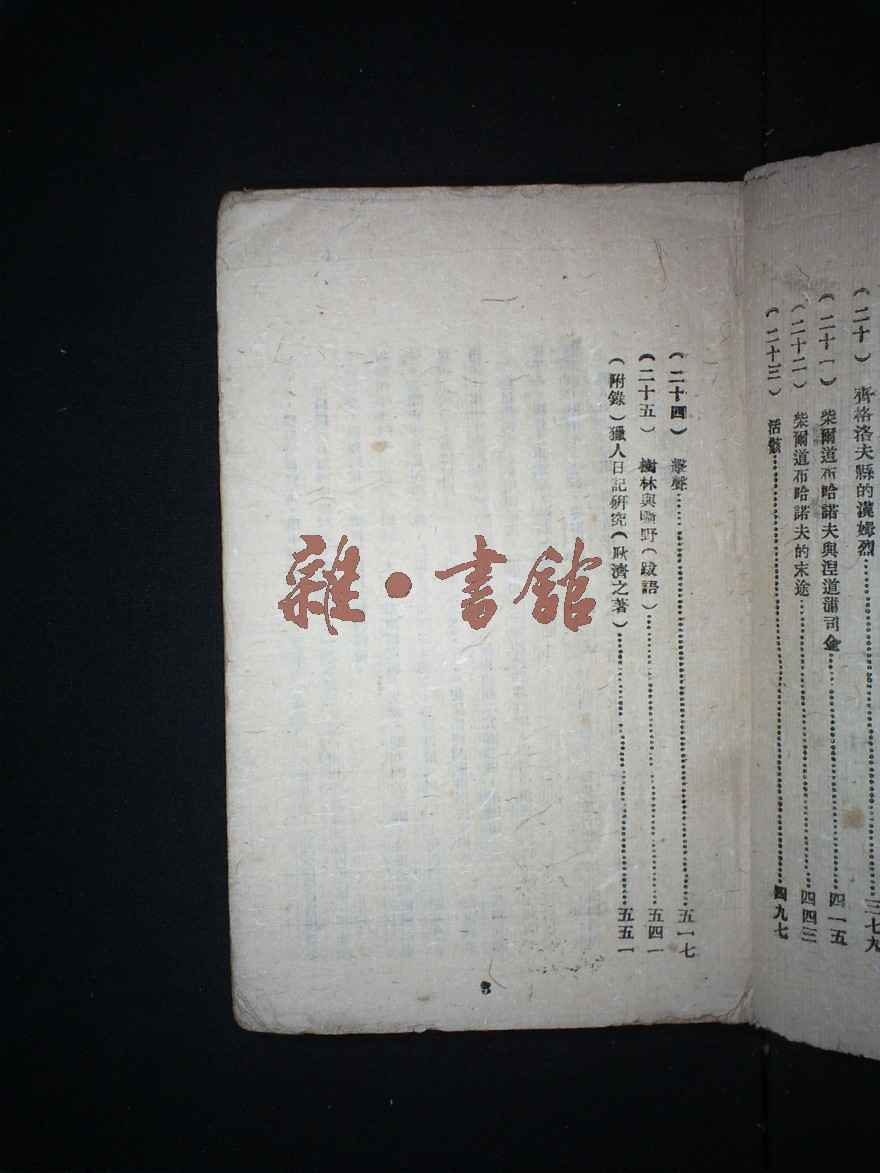 （二十）　齊格洛夫縣的漢姆烈……三七九
（二十一）　柴爾道布哈諾夫與涅道蒲司金……四一五
（二十二）　柴爾道布哈諾夫的末途……四四三
（二十三）　活骸……四九七
（二十四）　擊聲……五一七
（二十五）　樹林與曠野（跋語）……五四一
（附錄）獵人日記研究（耿濟之著）……五五一
3
雜·書館